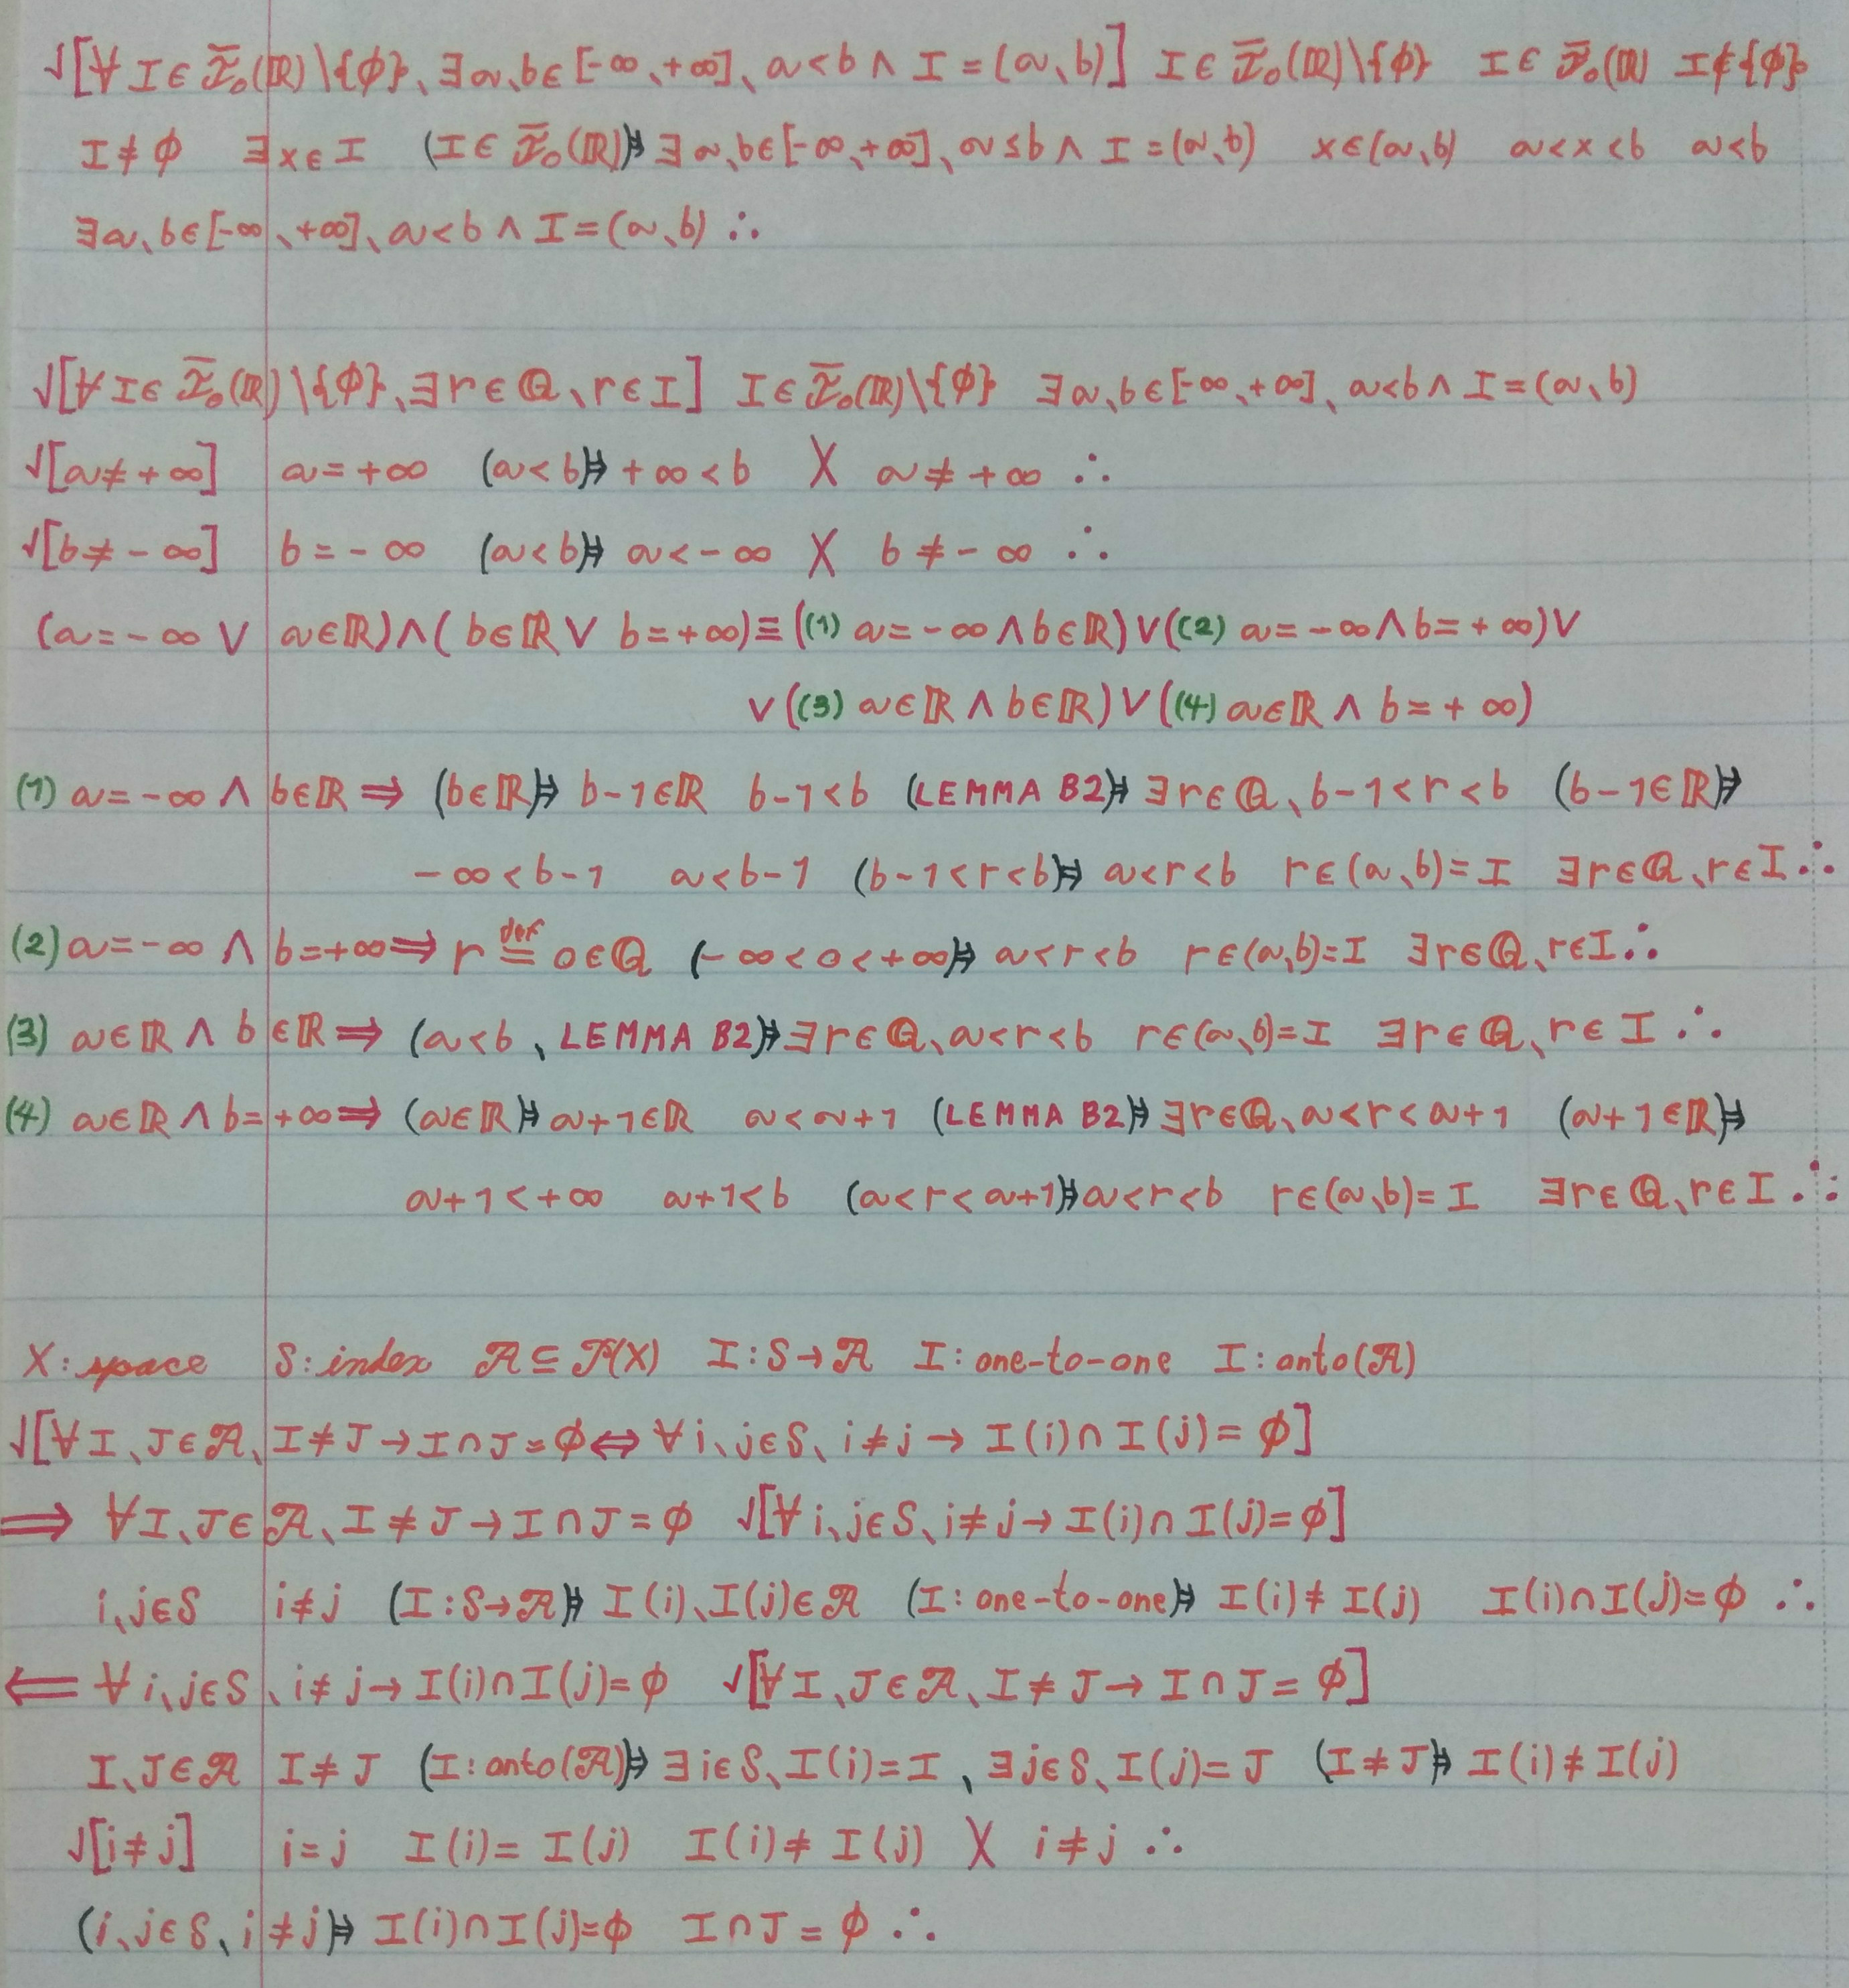 √[∀ I ∈ Ī₀(ℝ)\{ϕ}、∃a、b∈[-∞、+∞]、a<b ∧ I=(a、b)] I∈Ī₀(ℝ)\{ϕ} I∈Ī₀(ℝ) I∉{ϕ}
I≠ϕ ∃x∈I (I∈Ī₀(ℝ)⊧> ∃a、b∈[-∞、+∞]、a≤b ∧ I=(a、b) x∈(a、b) a<x<b a<b
∃a、b∈[-∞、+∞]、a<b ∧ I=(a、b) ∴
√[∀I∈Ī₀(ℝ)\{ϕ}、∃r∈ℚ、r∈I] I∈Ī₀(ℝ)\{ϕ} ∃a、b∈[-∞、+∞]、a<b ∧ I=(a、b)
√[a≠+∞] a=+∞ (a<b)⊧> +∞<b X a≠+∞ ∴
√[b≠-∞] b=-∞ (a<b)⊧> a<-∞ X b≠-∞ ∴
(a=-∞ ∨ a∈ℝ)∧(b∈ℝ ∨ b=+∞)≡((1) a=-∞∧b∈ℝ)∨((2) a=-∞∧b=+∞)∨
∨((3) a∈ℝ∧b∈ℝ)∨((4) a∈ℝ ∧ b=+∞)
(1) a=-∞ ∧ b∈ℝ ⇒ (b∈ℝ)⊧> b-1∈ℝ b-1<b (LEMMA B2)⊧> ∃r∈ℚ、b-1<r<b (b-1∈ℝ)⊧>
-∞<b-1 a<b-1 (b-1<r<b)⊧> a<r<b r∈(a、b)=I ∃r∈ℚ、r∈I ∴
(2) a=-∞ ∧ b=+∞ ⇒ r def= 0∈ℚ (-∞<0<+∞)⊧> a<r<b r∈(a、b)=I ∃r∈ℚ、r∈I ∴
(3) a∈ℝ ∧ b∈ℝ ⇒ (a<b、LEMMA B2)⊧> ∃r∈ℚ、a<r<b r∈(a、b)=I ∃r∈ℚ、r∈I ∴
(4) a∈ℝ ∧ b=+∞ ⇒ (a∈ℝ)⊧> a+1∈ℝ a<a+1 (LEMMA B2)⊧> ∃r∈ℚ、a<r<a+1 (a+1∈ℝ)⊧>
a+1<+∞ a+1<b (a<r<a+1)⊧> a<r<b r∈(a、b)=I ∃r∈ℚ、r∈I ∴
X: space S: index 𝒜⊆𝒫(X) I:S→𝒜 I: one-to-one I: onto(𝒜)
√[∀I、J∈𝒜、I≠J→I∩J=ϕ ⇔ ∀i、j∈S、i≠j→I(i)∩I(j)=ϕ]
⇒ ∀I、J∈𝒜、I≠J→I∩J=ϕ √[∀i、j∈S、i≠j→I(i)∩I(j)=ϕ]
i、j∈S i≠j (I:S→𝒜)⊧> I(i)、I(j)∈𝒜 (I: one-to-one)⊧> I(i)≠I(j) I(i)∩I(j)=ϕ ∴
⇐ ∀i、j∈S、i≠j→I(i)∩I(j)=ϕ √[∀I、J∈𝒜、I≠J→I∩J=ϕ]
I、J∈𝒜 I≠J (I: onto(𝒜))⊧> ∃i∈S、I(i)=I、∃j∈S、I(j)=J (I≠J)⊧> I(i)≠I(j)
√[i≠j] i=j I(i)=I(j) I(i)≠I(j) X i≠j ∴
(i、j∈S、i≠j)⊧> I(i)∩I(j)=ϕ I∩J=ϕ ∴